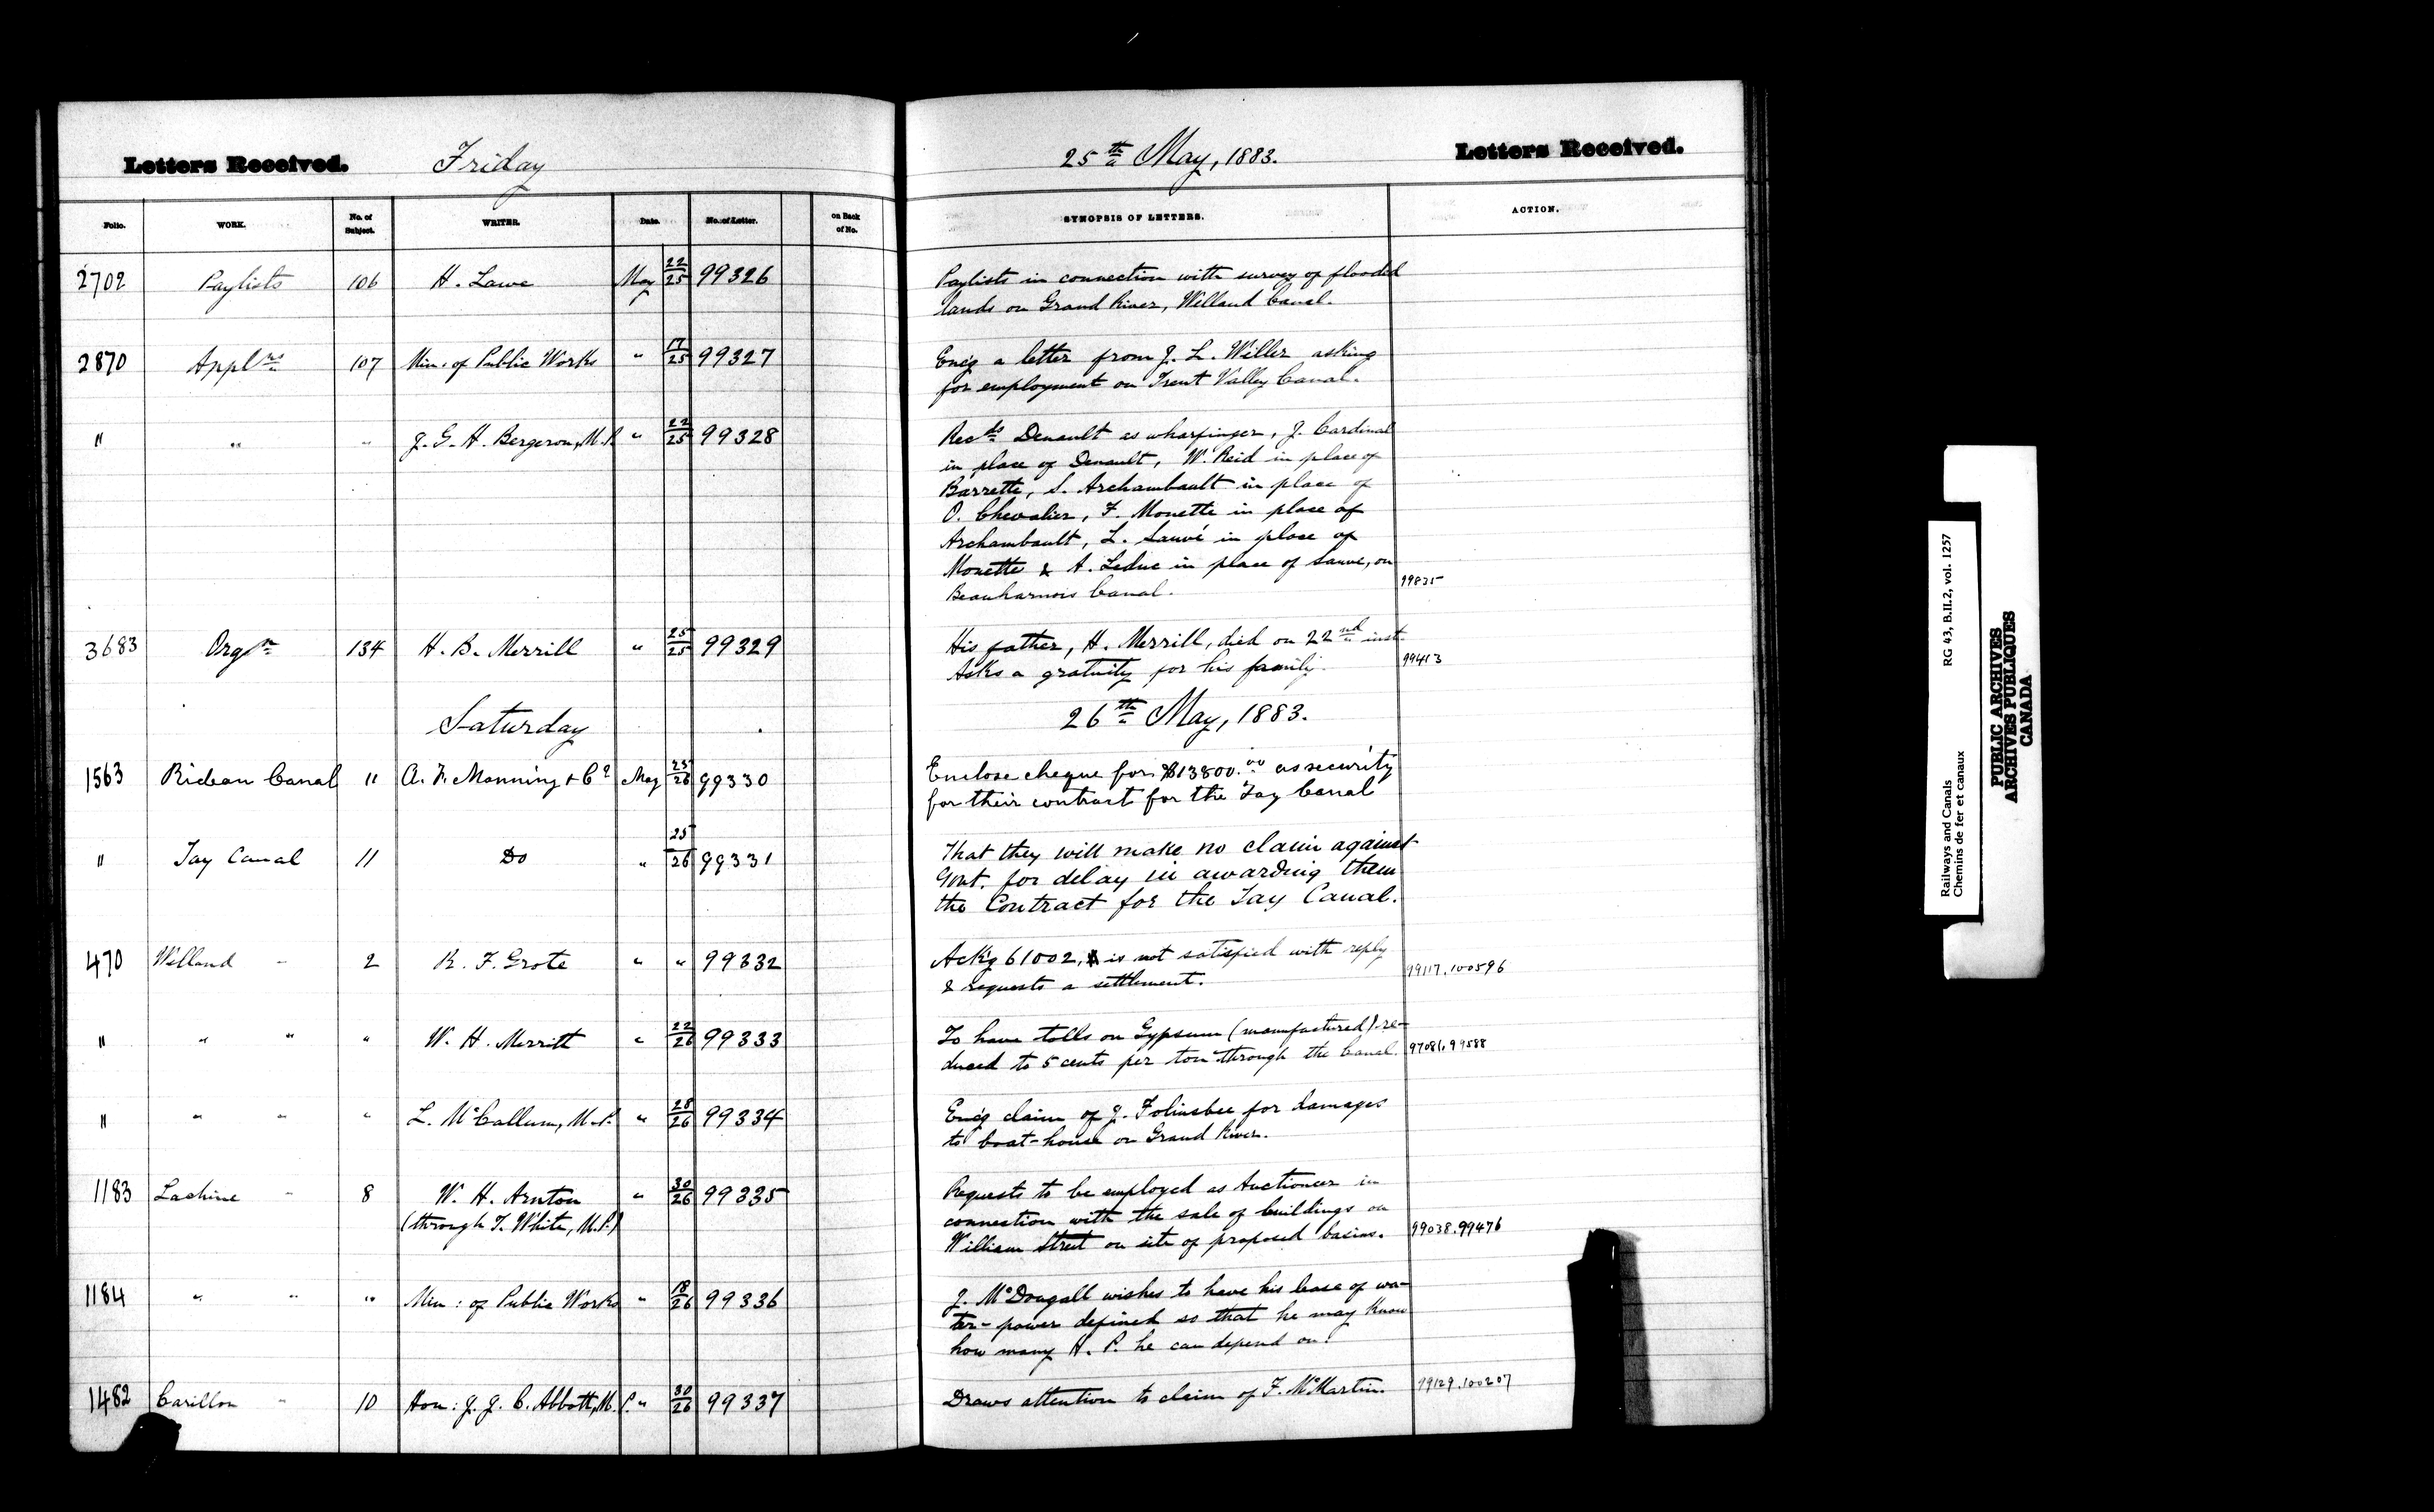 Letters Received. Friday 25th May, 1883. Letters Received.
Folio. WORK. No. of Subject. WRITER. Date. No. of Letter. on Back of No. SYNOPSIS OF LETTERS. ACTION.
2702 Paylists 106 H. Lawe May 22/25 99326 Paylists in connection with survey of flooded
lands on Grand River, Welland Canal.
2870 Applns 107 Min. of Public Works " 17/25 99327 Enc'g a letter from J. L. Weller asking
for employment on Trent Valley Canal.
" " " J. G. H. Bergeron, M.P. " 22/25 99328 Recds Denault as wharfinger, J. Cardinal
in place of Denault, W. Reid in place of
Barrette, S. Archambault in place of
O. Chevalier, F. Monette in place of
Archambault, L. Sauvé in place of
Monette & A. Leduc in place of Sauve, on
Beauharnois Canal. 99835
3683 Orgn 134 H. B. Merrill " 25/25 99329 His father, H. Merrill, died on 22nd inst.
Asks a gratuity for his family. 99413
Saturday 26th May, 1883.
1563 Rideau Canal 11 A. F. Manning & Co May 25/26 99330 Enclose cheque for $13800.00 as security
for their contract for the Tay Canal
" Tay Canal 11 Do " 25/26 99331 That they will make no claim against
Govt. for delay in awarding them
the Contract for the Tay Canal.
470 Welland " 2 R. F. Grote " " 99332 Ack'g 61002, is not satisfied with reply
& requests a settlement. 99117.100596
" " " " W. H. Merritt " 22/26 99333 To have tolls on Gypsum (manufactured) re-
duced to 5 cents per ton through the Canal. 97081.99588
" " " " L. McCallum, M.P. " 28/26 99334 Enc'g claim of J. Folinsbee for damages
to boat-house on Grand River.
1183 Lachine " 8 W. H. Arnton " 30/26 99335 Requests to be employed as Auctioneer in
(through T. White, M.P.) connection with the sale of buildings on
William Street on site of proposed basins. 99038.99476
1184 " " " Min: of Public Works " 18/26 99336 J. McDougall wishes to have his lease of wa-
ter-power defined so that he may know
how many H. P. he can depend on.
1482 Carillon " 10 Hon: J. J. C. Abbott, M.P. " 30/26 99337 Draws attention to claim of F. McMartin. 99129.100207
RG 43, B.II.2, vol. 1257
Railways and Canals
Chemins de fer et canaux
PUBLIC ARCHIVES
ARCHIVES PUBLIQUES
CANADA